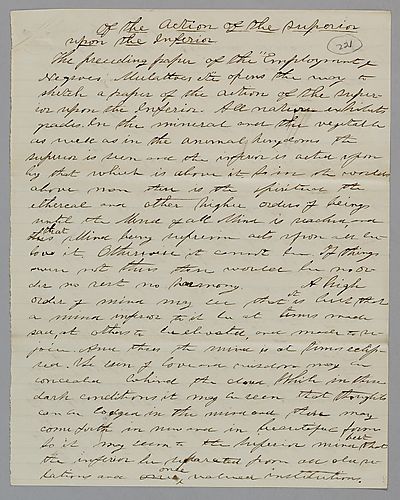 Of the Action of the Superior
upon the Inferior
221
The preceding paper of the "Employment of
Negroes Mulattoes etc opens the way to
sketch a paper of the action of the Super-
ior upon the Inferior. All nature exhibits
grades. In the mineral and the vegetable
as well as in the animal kingdoms the
superior is seen and the inferior is acted upon
by that which is above it. So in the worlds
above man there is the spiritual the
ethereal and other higher orders of beings
until the Mind of all Mind is reached and
this that Mind being supreme acts upon all be-
low it. Otherwise it cannot be. If things
were not thus there would be no or-
der no rest no harmony. A high
order of mind may see that it is best that
a mind inferior to it be at times made
sad, at others to be elevated, and made to re-
joice. And thus the mind is at times eclip-
sed. The sun of love and wisdom may be
concealed behind the cloud. While in these
dark conditions it may be seen that thoughts
can be lodged in the mind and these may
come forth in new and in beautiful forms
So it may seem to the superior mind best that
the inferior be separated from all old re-
lations and once valued institutions.